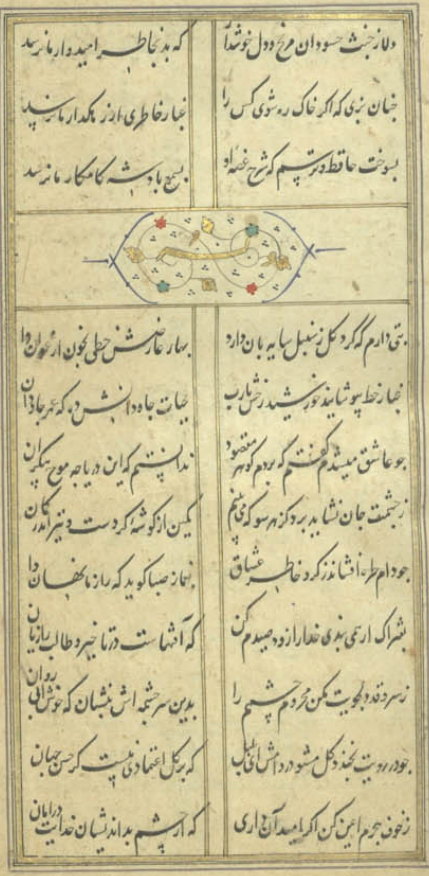 دلا ز خبث حسودان مرنج و دل خوشدار که بد بخاطر امیدوار ما نرسد
چنان بزی که اگر خاک ره شوی کس را غبار خاطری از رهگذار ما نرسد
بسوخت حافظ و ترسم که شرح غصه او بسمع پادشه کامکار ما نرسد
بتی دارم که گرد گل ز سنبل سایه بان دارد بهار عارضش خطی بخون ارغوان دا
غبار خط بپوشانید خورشید رخش یارب حیات جاودانش ده که عمر جاودان
چو عاشق میشدم گفتم که بردم گوهر مقصود ندانستم که این دریا چه موج بیکران
ز چشمت جان نشاید برد کز هر سو که می بینم کمین از گوشه کردست و تیر اندر کمان
چو دام طره افشاند ز گرد خاطر عشاق بغماز صبا گوید که راز ما نهان دا
بفتراک ار همی بندی خدا را زود صیدم کن که آفتهاست در تاخیر و طالب را زیان
ز سرو قد دلجویت مکن محروم چشمم را بدین سرچشمه اش بنشان که خوش آبی روان
چو در رویت بخندد گل مشو در دامش ای بلبل که بر گل اعتمادی نیست گر حسن جهان
ز خوف هجرم ایمن کن اگر امید آن داری که از چشم بداندیشان خدایت در امان